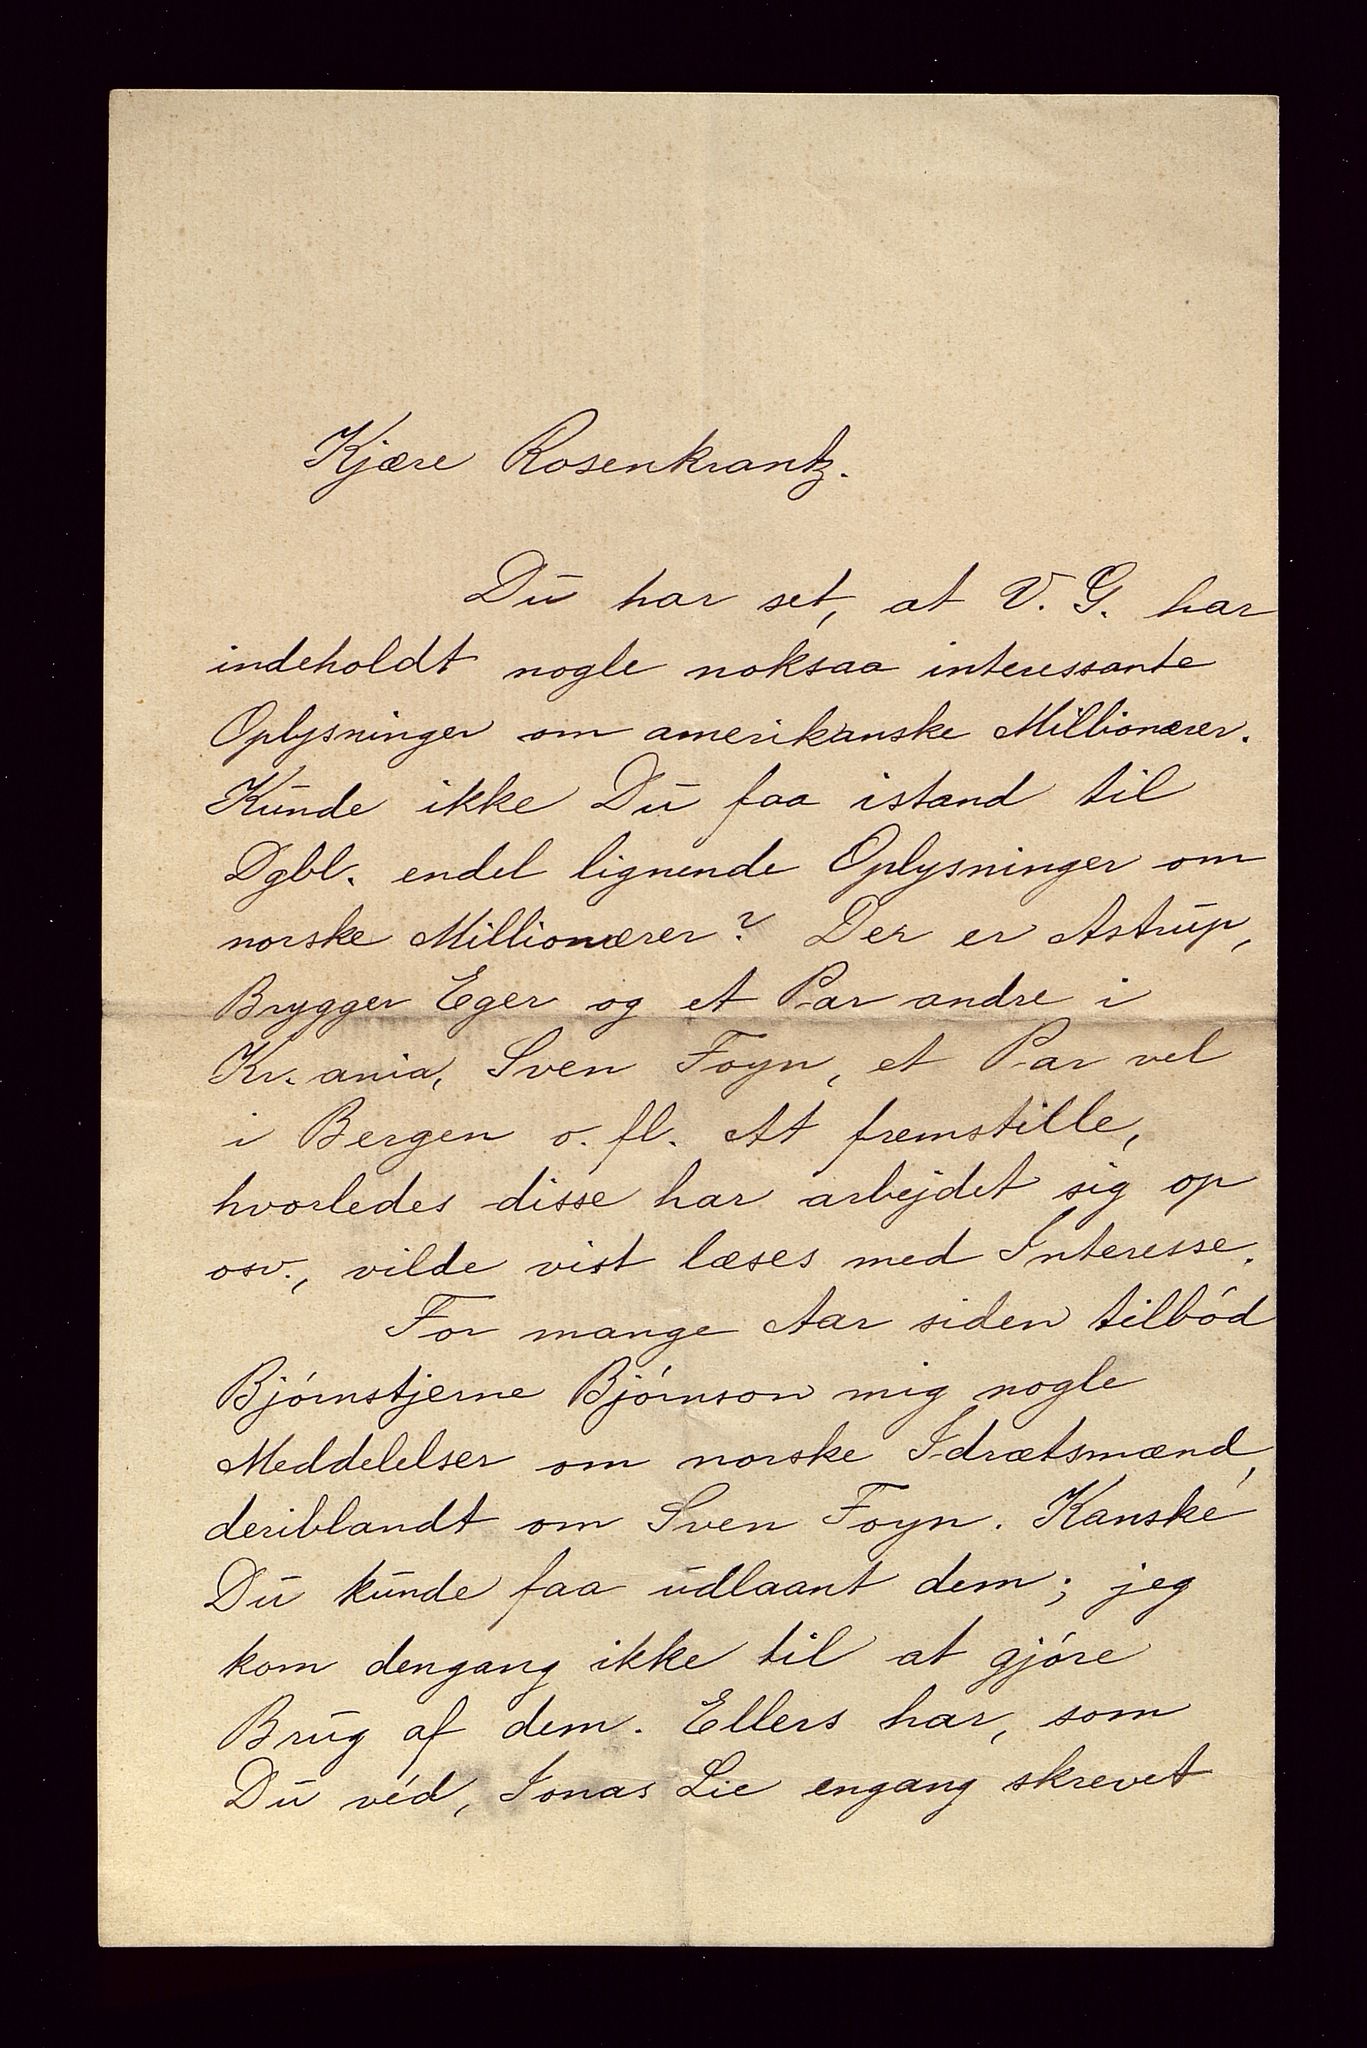 Kjære Rosenkrantz.
Du har set, at V. G. har
indeholdt nogle noksaa interessante
Oplysninger om amerikanske Millionærer.
Kunde ikke Du faa istand til
Dgbl. endel lignende Oplysninger om
norske Millionærer? Der er Astrup,
Brygger Eger og et Par andre i
Kr.ania, Sven Foyn, et Par vel
i Bergen o. fl. At fremstille,
hvorledes disse har arbejdet sig op
osv., vilde vist læses med Interesse.
For mange Aar siden tilbód
Bjórnstjerne Bjórnson mig nogle
Meddelelser om norske Idrætsmænd,
deriblandt om Sven Foyn. Kanské
Du kunde faa udlaant dem; jeg
kom dengang ikke til at gjóre
Brug af dem. Ellers har, som
Du véd, Jonas Lie engang skrevet